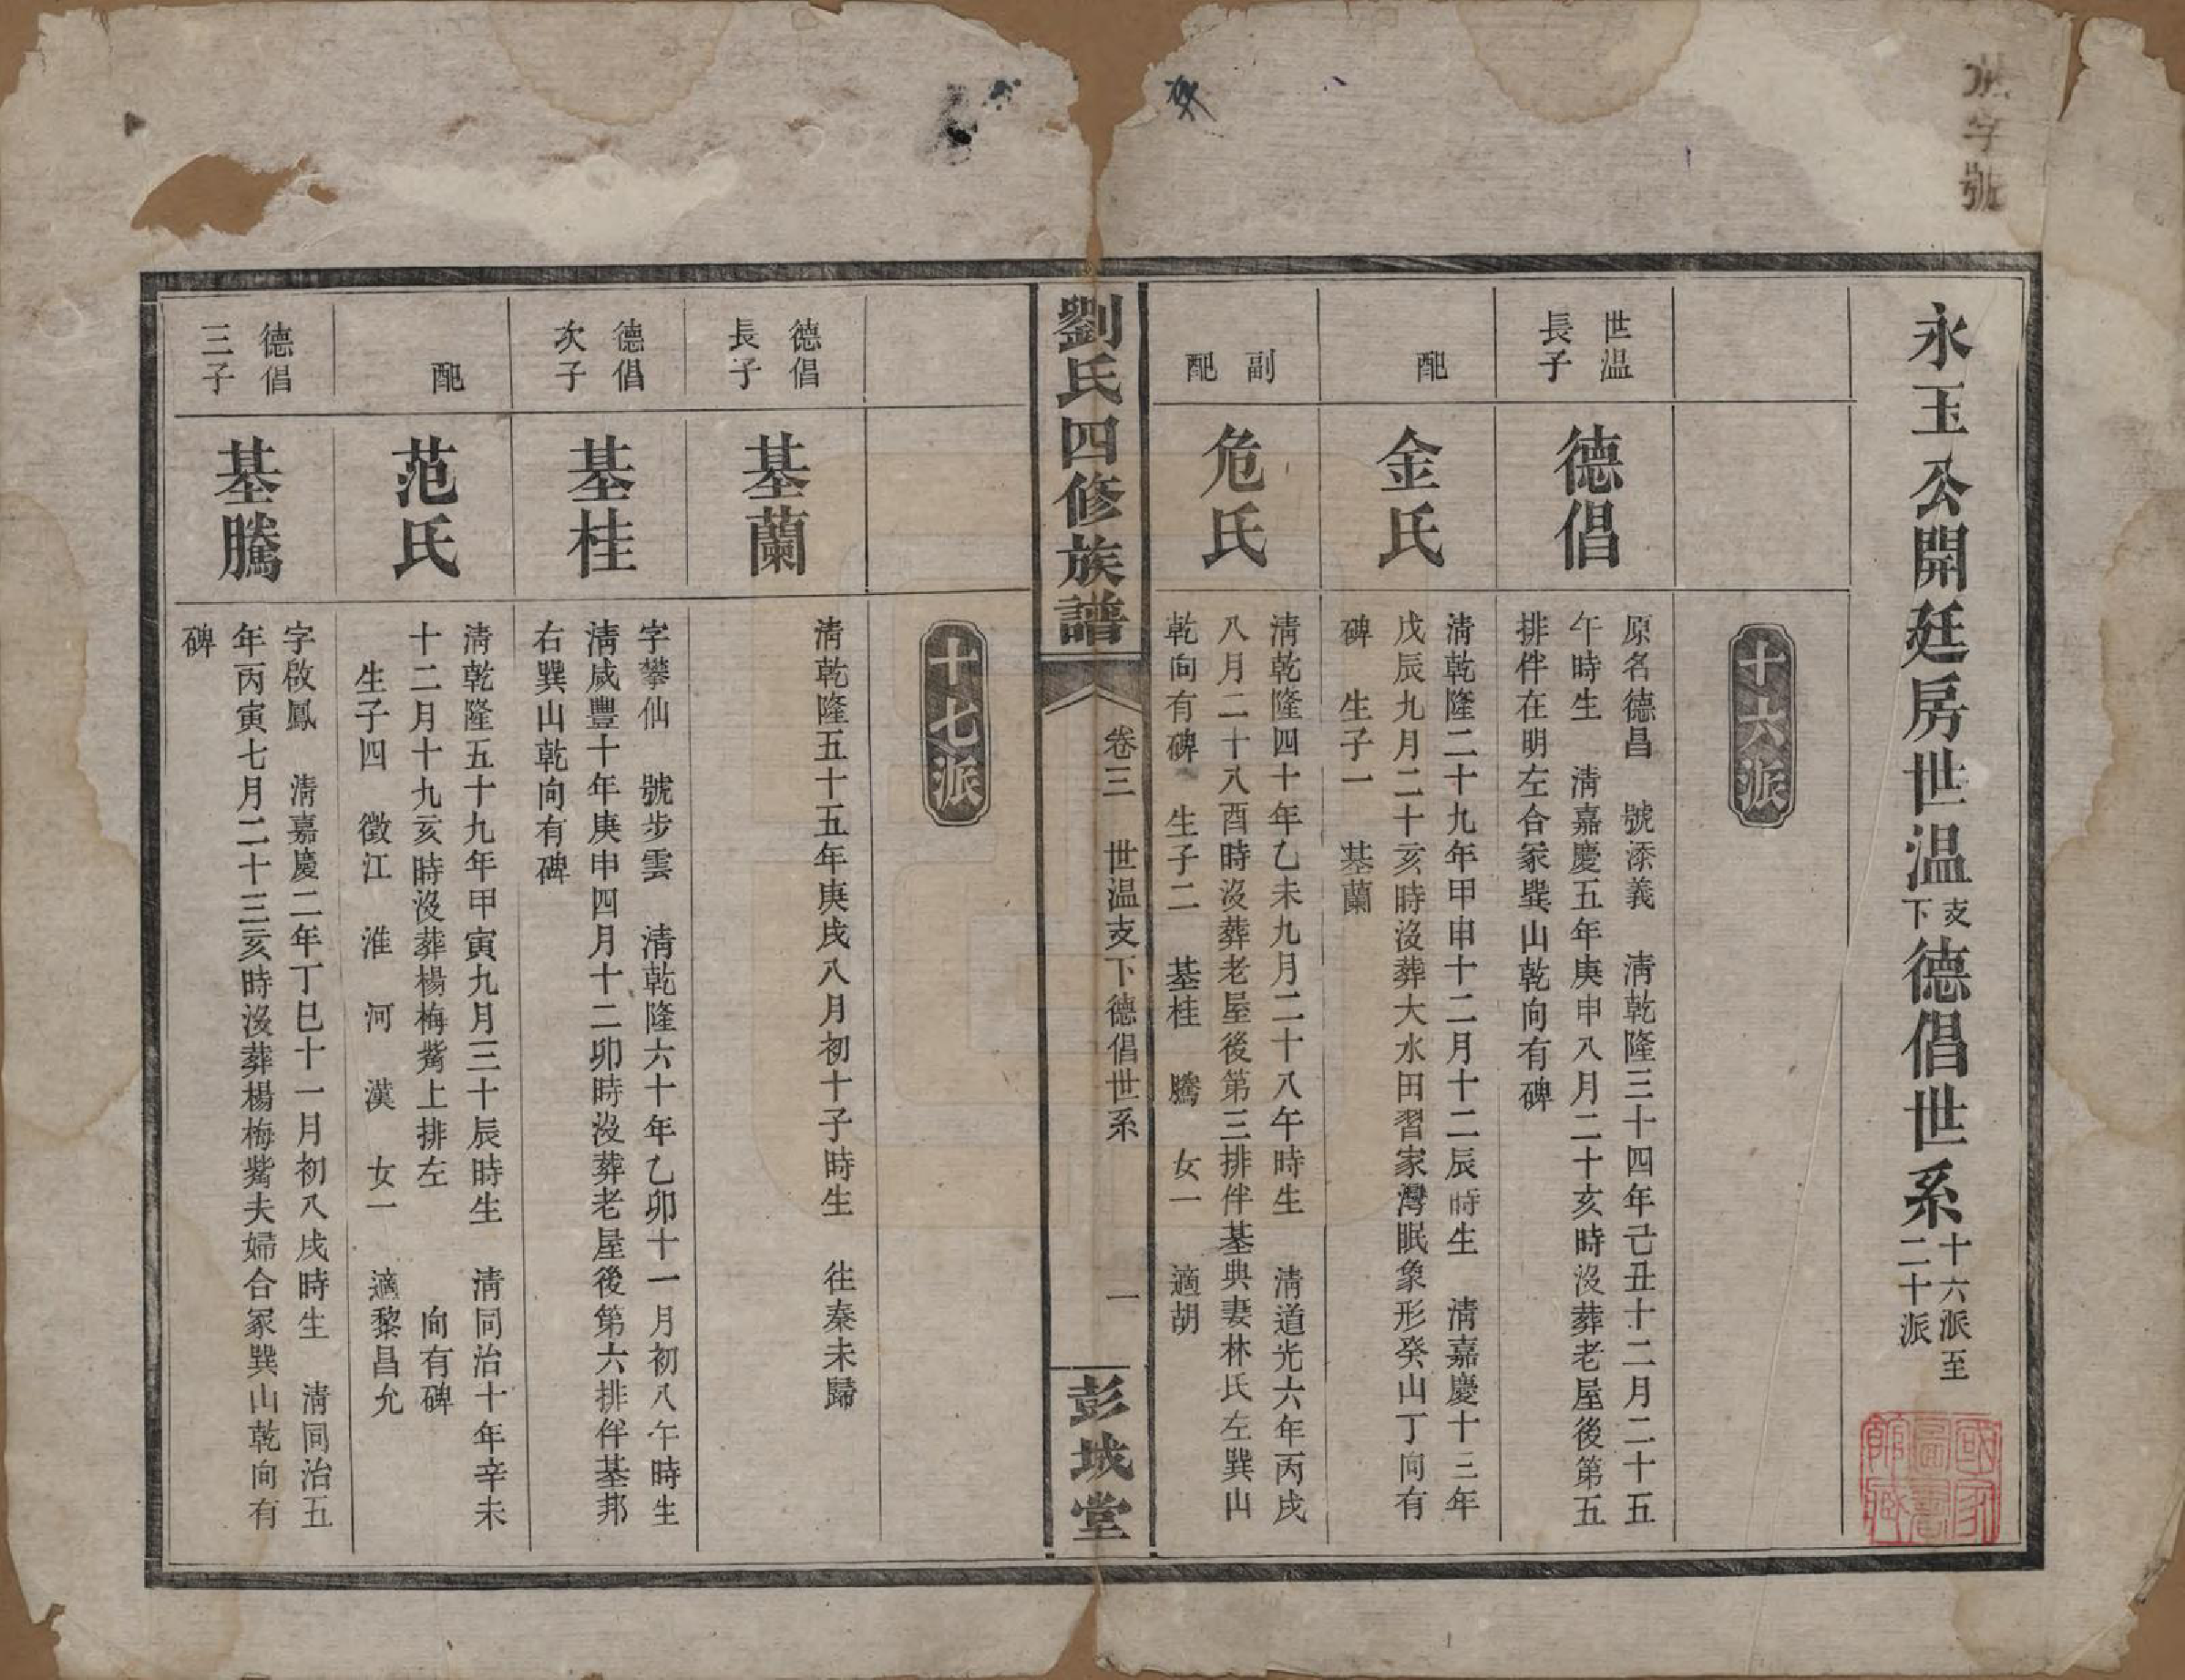 字號
永玉公開廷房世温支下德倡世系十六派至二十派
國家圖書館藏
十六派
世温長子
德倡
原名德昌　號添義　清乾隆三十四年己丑十二月二十五
午時生　清嘉慶五年庚申八月二十亥時沒葬老屋後第五
排伴在明左合冢巽山乾向有碑
配
金氏
清乾隆二十九年甲申十二月十二辰時生　清嘉慶十三年
戊辰九月二十亥時沒葬大水田習家灣眠象形癸山丁向有
碑　生子一　基蘭
副配
危氏
清乾隆四十年乙未九月二十八午時生　清道光六年丙戌
八月二十八酉時沒葬老屋後第三排伴基典妻林氏左巽山
乾向有碑　生子二　基桂　騰　女一　適胡
劉氏四修族譜
卷三　世温支下德倡世系
一
彭城堂
十七派
德倡長子
基蘭
清乾隆五十五年庚戌八月初十子時生　往秦未歸
德倡次子
基桂
字攀仙　號步雲　清乾隆六十年乙卯十一月初八午時生
清咸豐十年庚申四月十二卯時沒葬老屋後第六排伴基邦
右巽山乾向有碑
配
范氏
清乾隆五十九年甲寅九月三十辰時生　清同治十年辛未
十二月十九亥時沒葬楊梅觜上排左　向有碑
生子四　徵江　淮　河　漢　女一　適黎昌允
德倡三子
基騰
字啟鳳　清嘉慶二年丁巳十一月初八戌時生　清同治五
年丙寅七月二十三亥時沒葬楊梅觜夫婦合冢巽山乾向有
碑